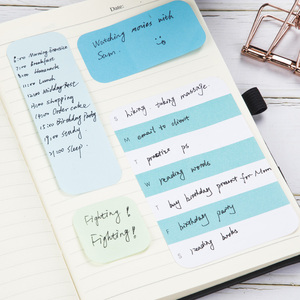 Date:
Watching movies with
Sam.
6:00 Morning Exercise
7:00 Breakfast
8:00 Housework
11:00 Lunch
12:00 Midday Rest
14:00 Shopping
17:00 Order cake
18:00 Birthday Party
19:00 Study
21:00 Sleep.
S taking massage
M email to client
T practise ps
W reading words
T buy birthday present for Mom
F birthday party
S reading books
Fighting!
Fighting!